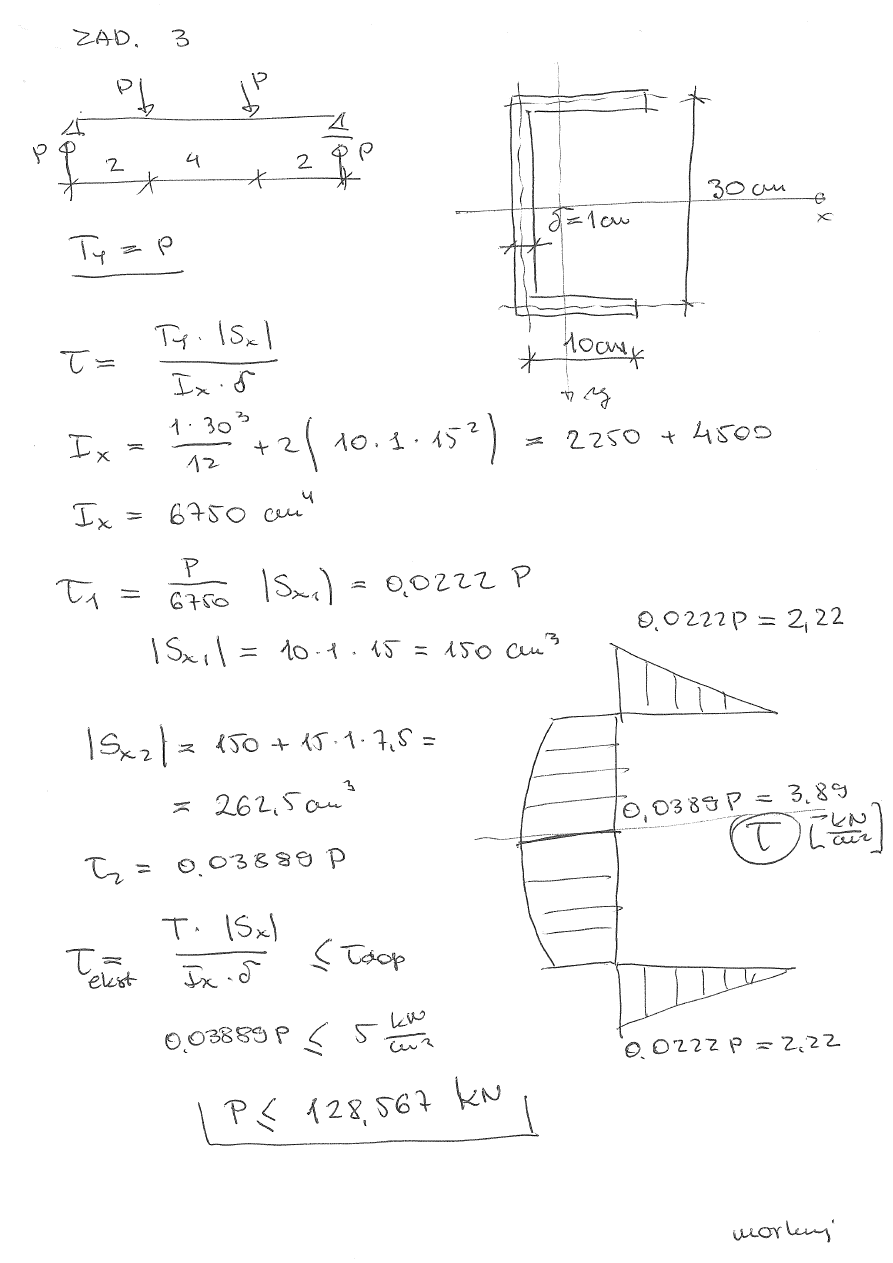 ZAD. 3
P P
P 2 4 2 P
30 cm
x
δ = 1 cm
10 cm
y
Ty = P
τ = Ty · |Sx| / Ix · δ
Ix = 1·30³/12 + 2( 10·1·15² ) = 2250 + 4500
Ix = 6750 cm⁴
τ₁ = P/6750 |Sx₁| = 0,0222 P
|Sx₁| = 10·1·15 = 150 cm³
0,0222P = 2,22
|Sx2| = 150 + 15·1·7,5 =
= 262,5 cm³
0,0389P = 3,89
τ [kN/cm²]
τ₂ = 0,03889 P
τekst = T · |Sx| / Ix · δ ≤ τdop
0,03889P ≤ 5 kN/cm²
0,0222 P = 2,22
P ≤ 128,567 kN